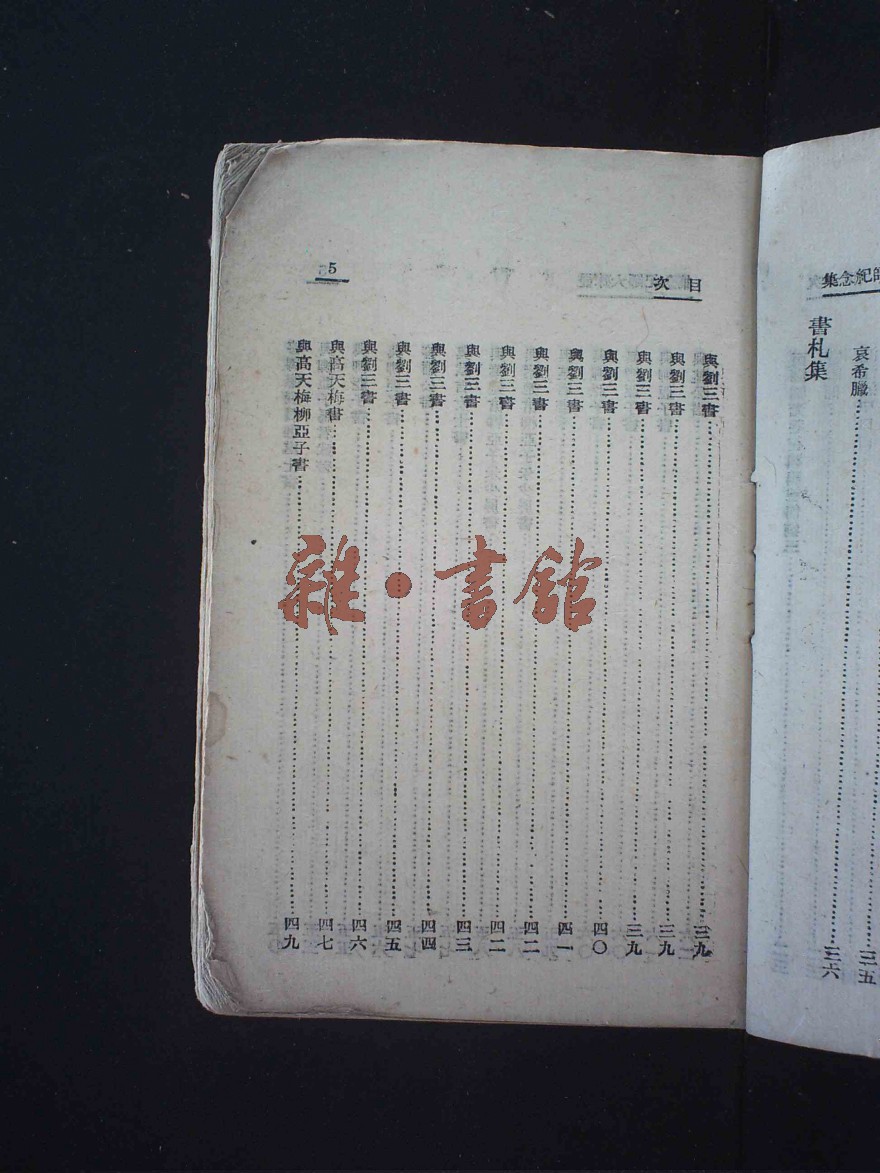 師紀念集
哀希臘……三五
書札集……三六
目次
5
與劉三書……三九
與劉三書……三九
與劉三書……三九
與劉三書……四〇
與劉三書……四一
與劉三書……四二
與劉三書……四二
與劉三書……四三
與劉三書……四四
與劉三書……四五
與劉三書……四六
與高天梅書……四七
與高天梅柳亞子書……四九
雜·書館